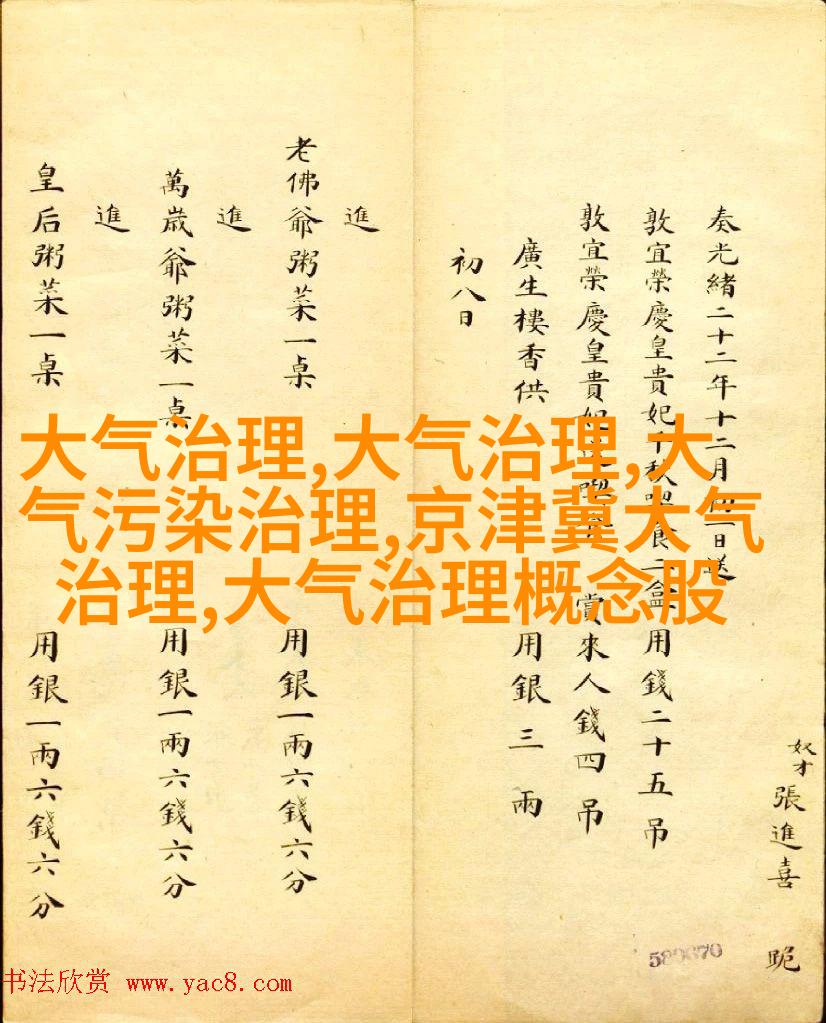 奴才張進喜 跪
奏光緒二十二年十二月初一日送
敦宜榮慶皇貴妃千秋喫食二盒用錢二十五吊
敦宜榮慶皇貴妃 賞來人錢四吊
廣生樓香供 用銀三兩
初八日
進
老佛爺粥菜一桌 用銀一兩六錢六分
進
萬歲爺粥菜一桌 用銀一兩六錢六分
進
皇后粥菜一桌 用銀一兩六錢六分
大气治理,大气治理,大
气污染治理,京津冀大气
治理,大气治理概念股
书法欣赏 www.yac8.com